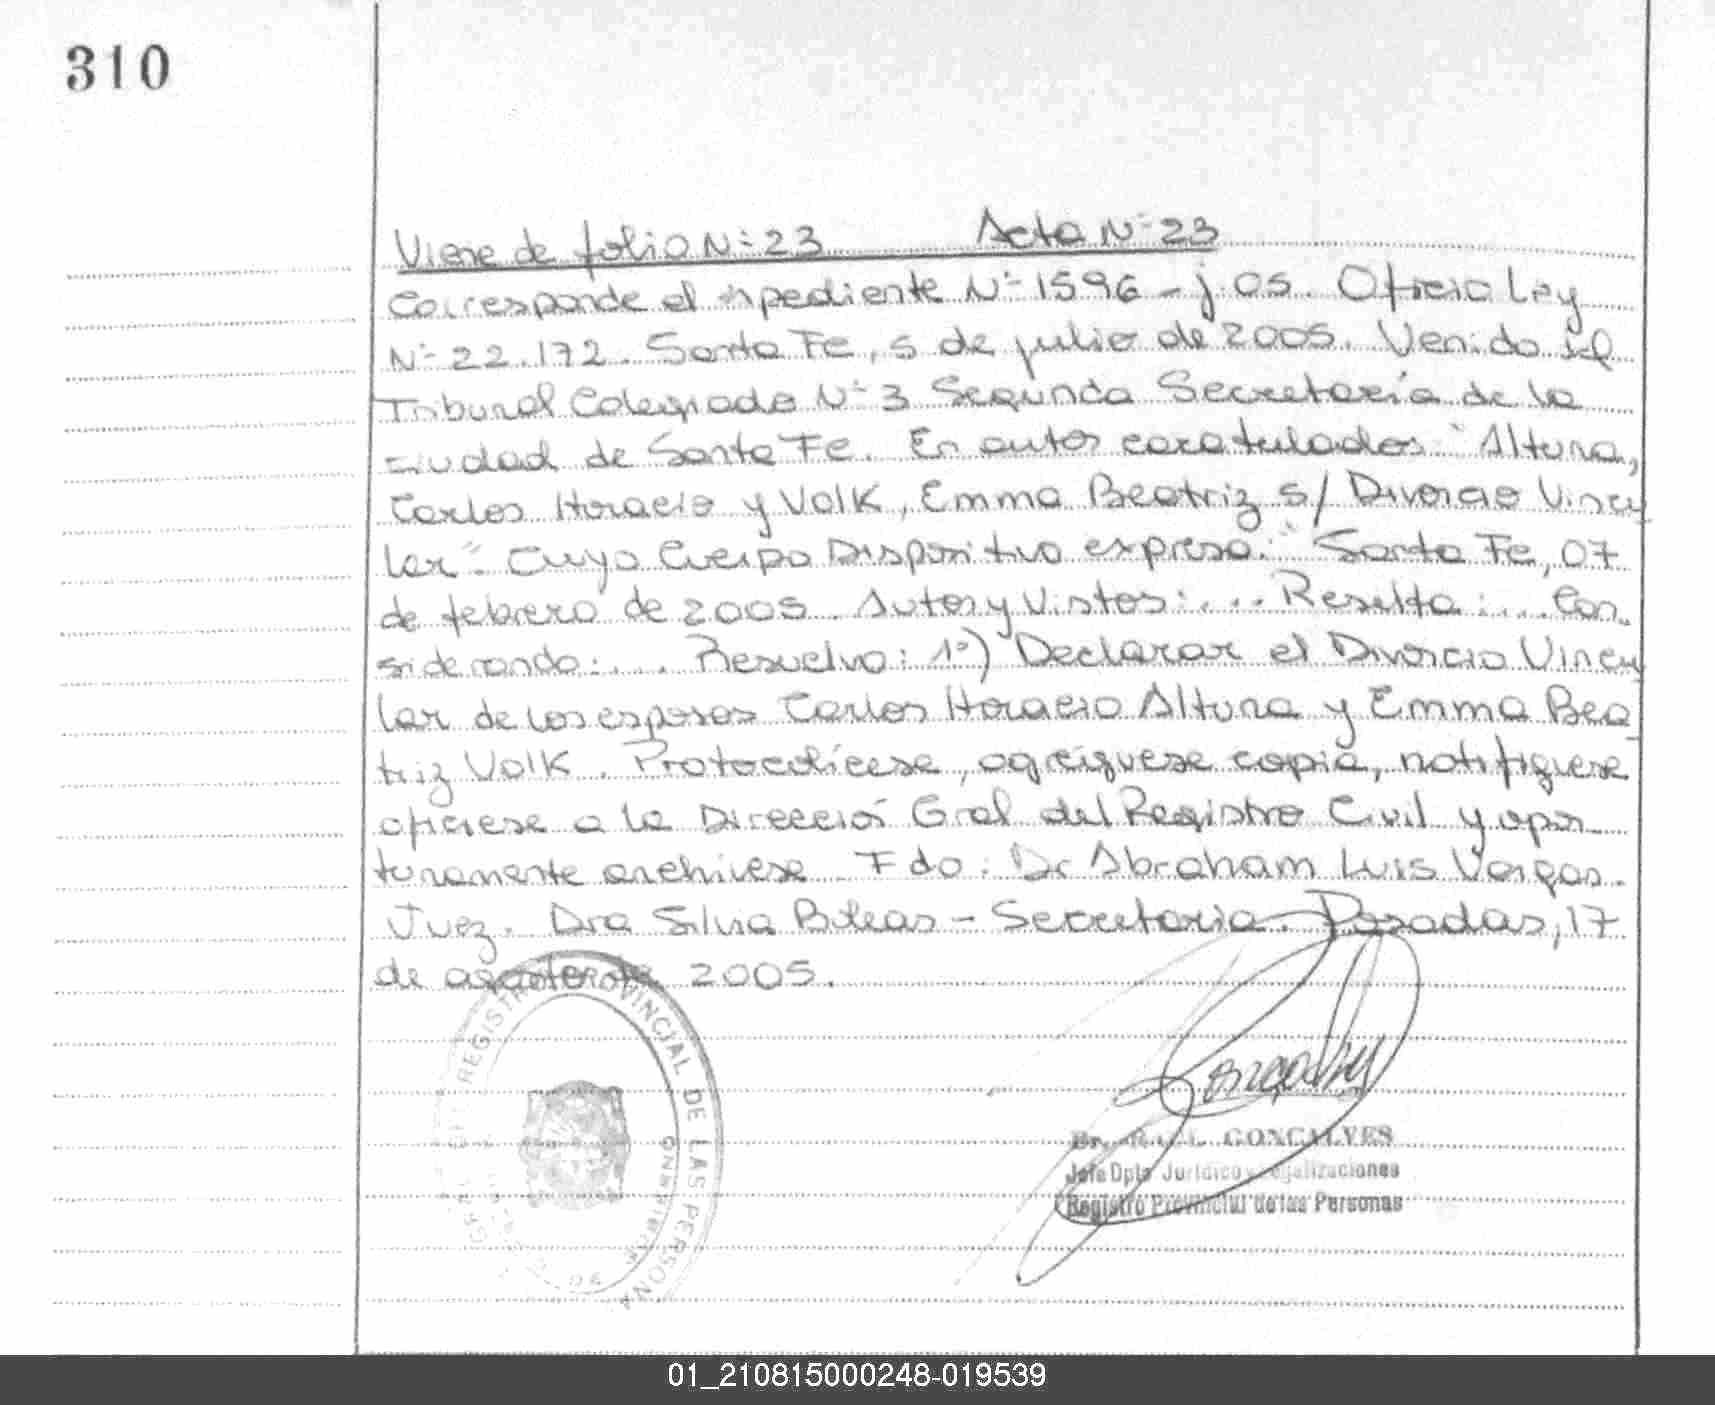 310
Viene de folio Nº 23 Acta Nº 23
Corresponde al expediente Nº 1596 - j. 05. Oficio Ley
Nº 22.172. Santa Fe, 5 de julio de 2005. Venido del
Tribunal Colegiado Nº 3 Segunda Secretaría de la
ciudad de Santa Fe. En autos caratulados: "Altuna,
Carlos Horacio y Volk, Emma Beatriz s/ Divorcio Vincu
lar". Cuyo Cuerpo Dispositivo expresa: "Santa Fe, 07
de febrero de 2005. Autos y Vistos: ... Resulta: ... Con_
siderando: ... Resuelvo: 1º) Declarar el Divorcio Vincu
lar de los esposos Carlos Horacio Altuna y Emma Bea_
triz Volk. Protocolícese, agréguese copia, notifíquese
ofíciese a la Dirección Gral del Registro Civil y opor_
tunamente archívese. Fdo: Dr Abraham Luis Vargas.
Juez. Dra Silvia Buteas - Secretaria. Posadas, 17
de agosto de 2005.
REGISTRO PROVINCIAL DE LAS PERSONAS
Dr. RAUL GONCALVES
Jefe Dpto Jurídico y Legalizaciones
Registro Provincial de las Personas
01_210815000248-019539